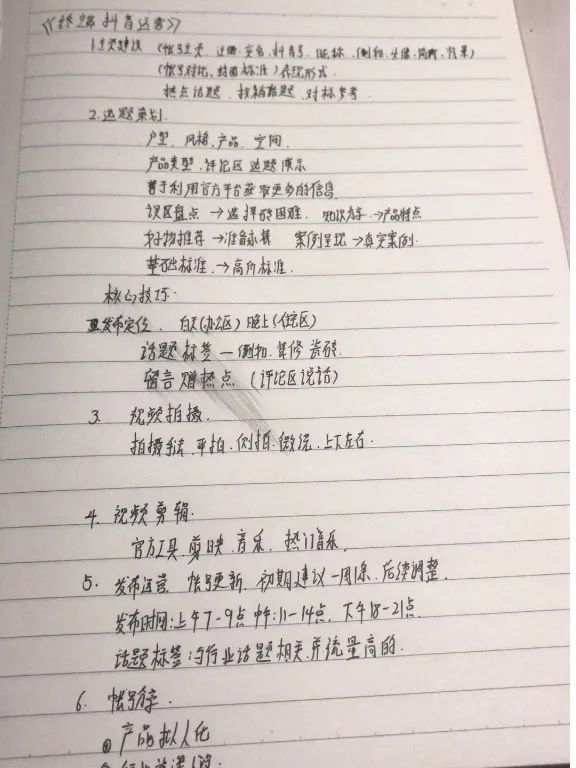 《终端抖音运营》
1.主页建议 (帐号主页、注册、实名、抖音号、昵称、例如、头像、简介、背景)
(帐号对比、封面标准) 表现形式
热点话题、按销售题、对标参考
2.选题策划
户型、风格、产品、空间
产品类型、评论区选题展示
善于利用官方平台获取更多的信息
误区盘点 → 选择的困难、知识分享 → 产品特点
好物推荐 → 准备永赛 案例呈现 → 真实案例
基础标准 → 高阶标准
核心技巧.
发布定位、白天(办公区) 晚上(住宅区)
话题标签一例如.装修 瓷砖
留言蹭热点 (评论区说话)
3. 视频拍摄.
拍摄手法、平拍.侧拍.微流.上下左右.
4. 视频剪辑.
官方工具、剪映、音乐、热门音乐.
5. 发布运营、帐号更新、初期建议一周1条、后续调整.
发布时间:上午7-9点 中午:11-14点、下午18-21点.
话题标签:与行业话题相关并流量高的.
6. 帐号分享.
① 产品拟人化